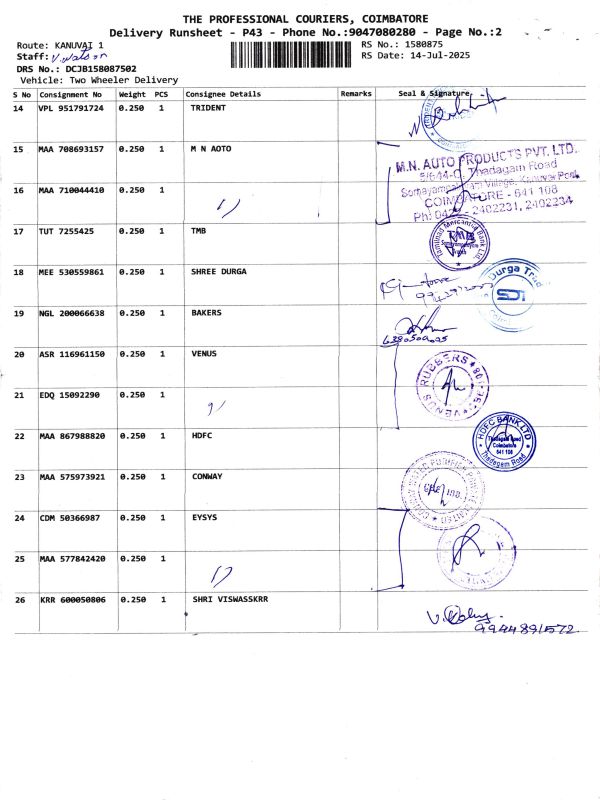 THE PROFESSIONAL COURIERS, COIMBATORE
Delivery Runsheet - P43 - Phone No.:9047080280 - Page No.:2
Route: KANUVAI 1
RS No.: 1580875
Staff:
RS Date: 14-Jul-2025
DRS No.: DCJB158087502
Vehicle: Two Wheeler Delivery
S No Consignment No Weight PCS Consignee Details Remarks Seal & Signature
14 VPL 951791724 0.250 1 TRIDENT
15 MAA 708693157 0.250 1 M N AOTO
M.N. AUTO PRODUCTS PVT. LTD.
Thadagam Road
16 MAA 710044410 0.250 1
COIMBATORE - 641 108
2402231, 2402234
17 TUT 7255425 0.250 1 TMB
Tamilnad Mercantile Bank Ltd
TMB
18 MEE 530559861 0.250 1 SHREE DURGA
Durga
SDT
19 NGL 200066638 0.250 1 BAKERS
20 ASR 116961150 0.250 1 VENUS
VENUS RUBBERS
21 EDQ 15092290 0.250 1
22 MAA 867988820 0.250 1 HDFC
HDFC BANK LTD
Thadagam Road
Coimbatore
641 108
Thadagam Road
23 MAA 575973921 0.250 1 CONWAY
24 CDM 50366987 0.250 1 EYSYS
25 MAA 577842420 0.250 1
26 KRR 600050806 0.250 1 SHRI VISWASSKRR
9944891572